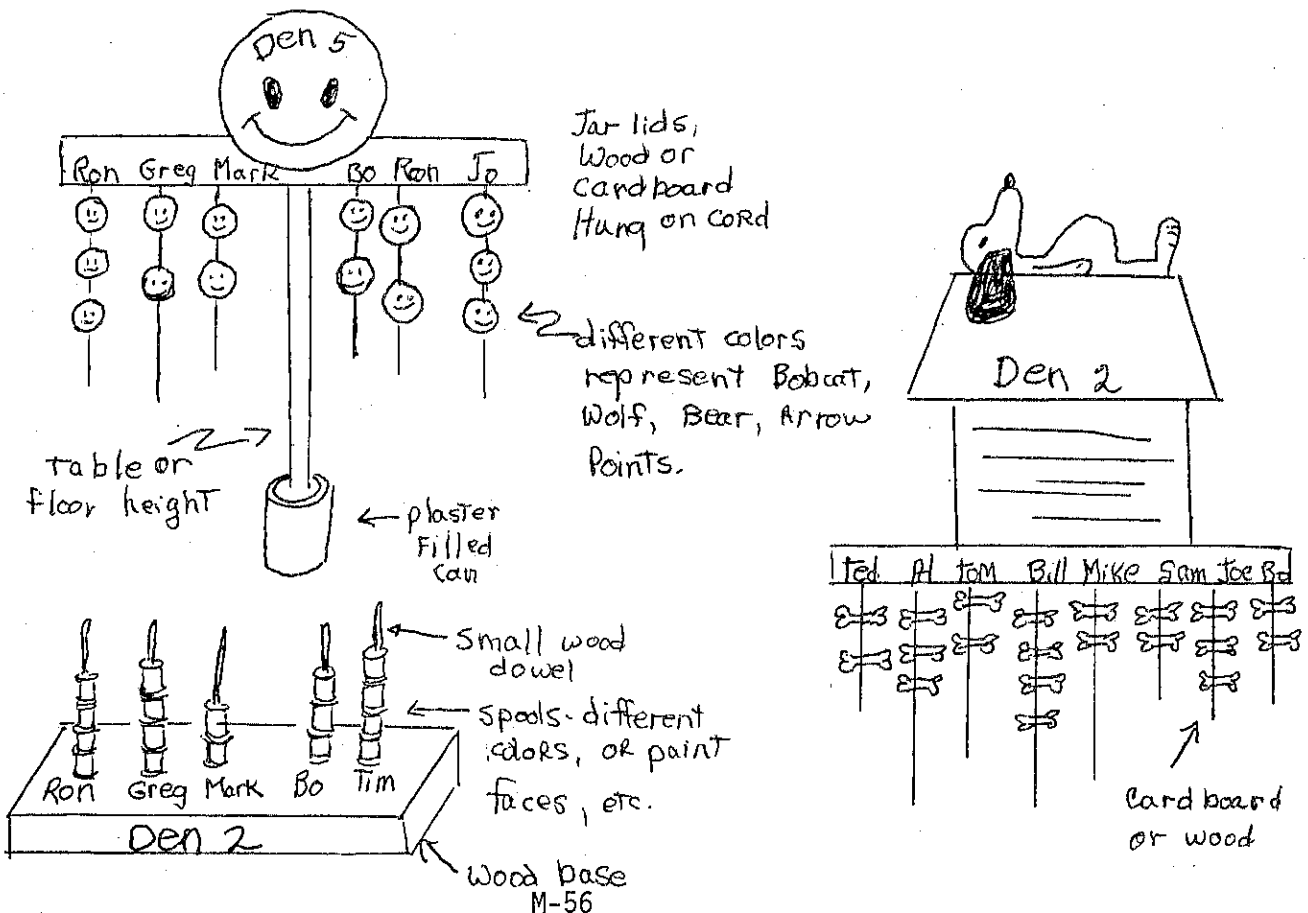 Den 5
Ron Greg Mark Bo Ron Jo
Jar lids,
Wood or
Cardboard
Hung on CoRd
different colors
represent Bobcat,
Wolf, Bear, Arrow
Points.
Table or
floor height
plaster
Filled
Can
Small wood
dowel
Spools-different
coloRs, oR paint
faces, etc.
Ron Greg Mark Bo Tim
Den 2
Wood base
M-56
Den 2
Ted Al Tom Bill Mike Sam Joe Bo
Cardboard
or wood